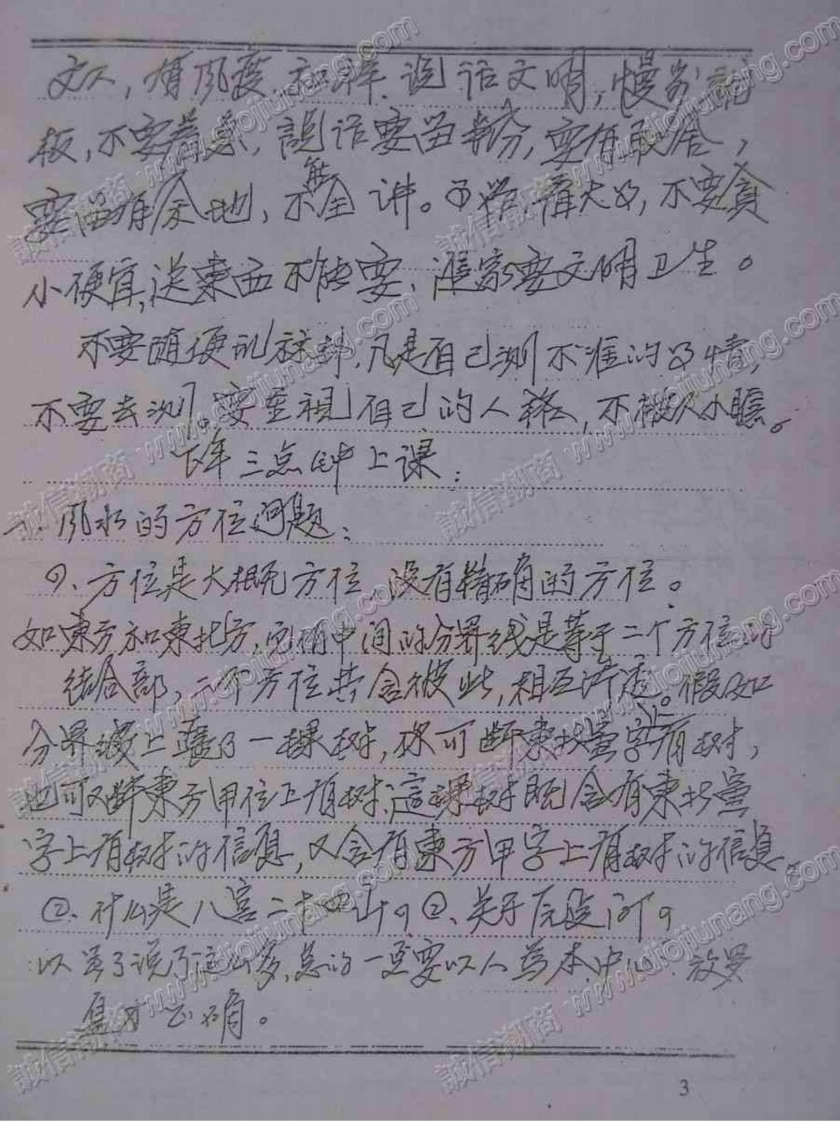 文人,有风度、和祥、说话文明,慢
板,不要着急,説话要留部分,要有取舍,
要留有余地,不能全讲。不要贪
小便宜,送東西不能要,進家要文明卫生。
不要随便,凡是自己测不准的事情,
不要去测。要重視自己的人格,不被人小瞧。
下午三点钟上课:
一、风水的方位问题:
①、方位是大概方位,没有精确的方位。
如東方和東北方,中间的分界线是等于二个方位的
结合部,二个方位共含彼此,相互渗透。假如
分界线上長了一棵树,你可断東北寅字上有树,
也可以断東方甲位上有树,這棵树既含有東北寅
字上有树的信息,又含有東方甲字上有树的信息。
②、什么是八宫二十四山?③、关于问?
说了这么多,总的一直要以人为本,中心放
正确。
3
誠信潮商 www.diojunang.com